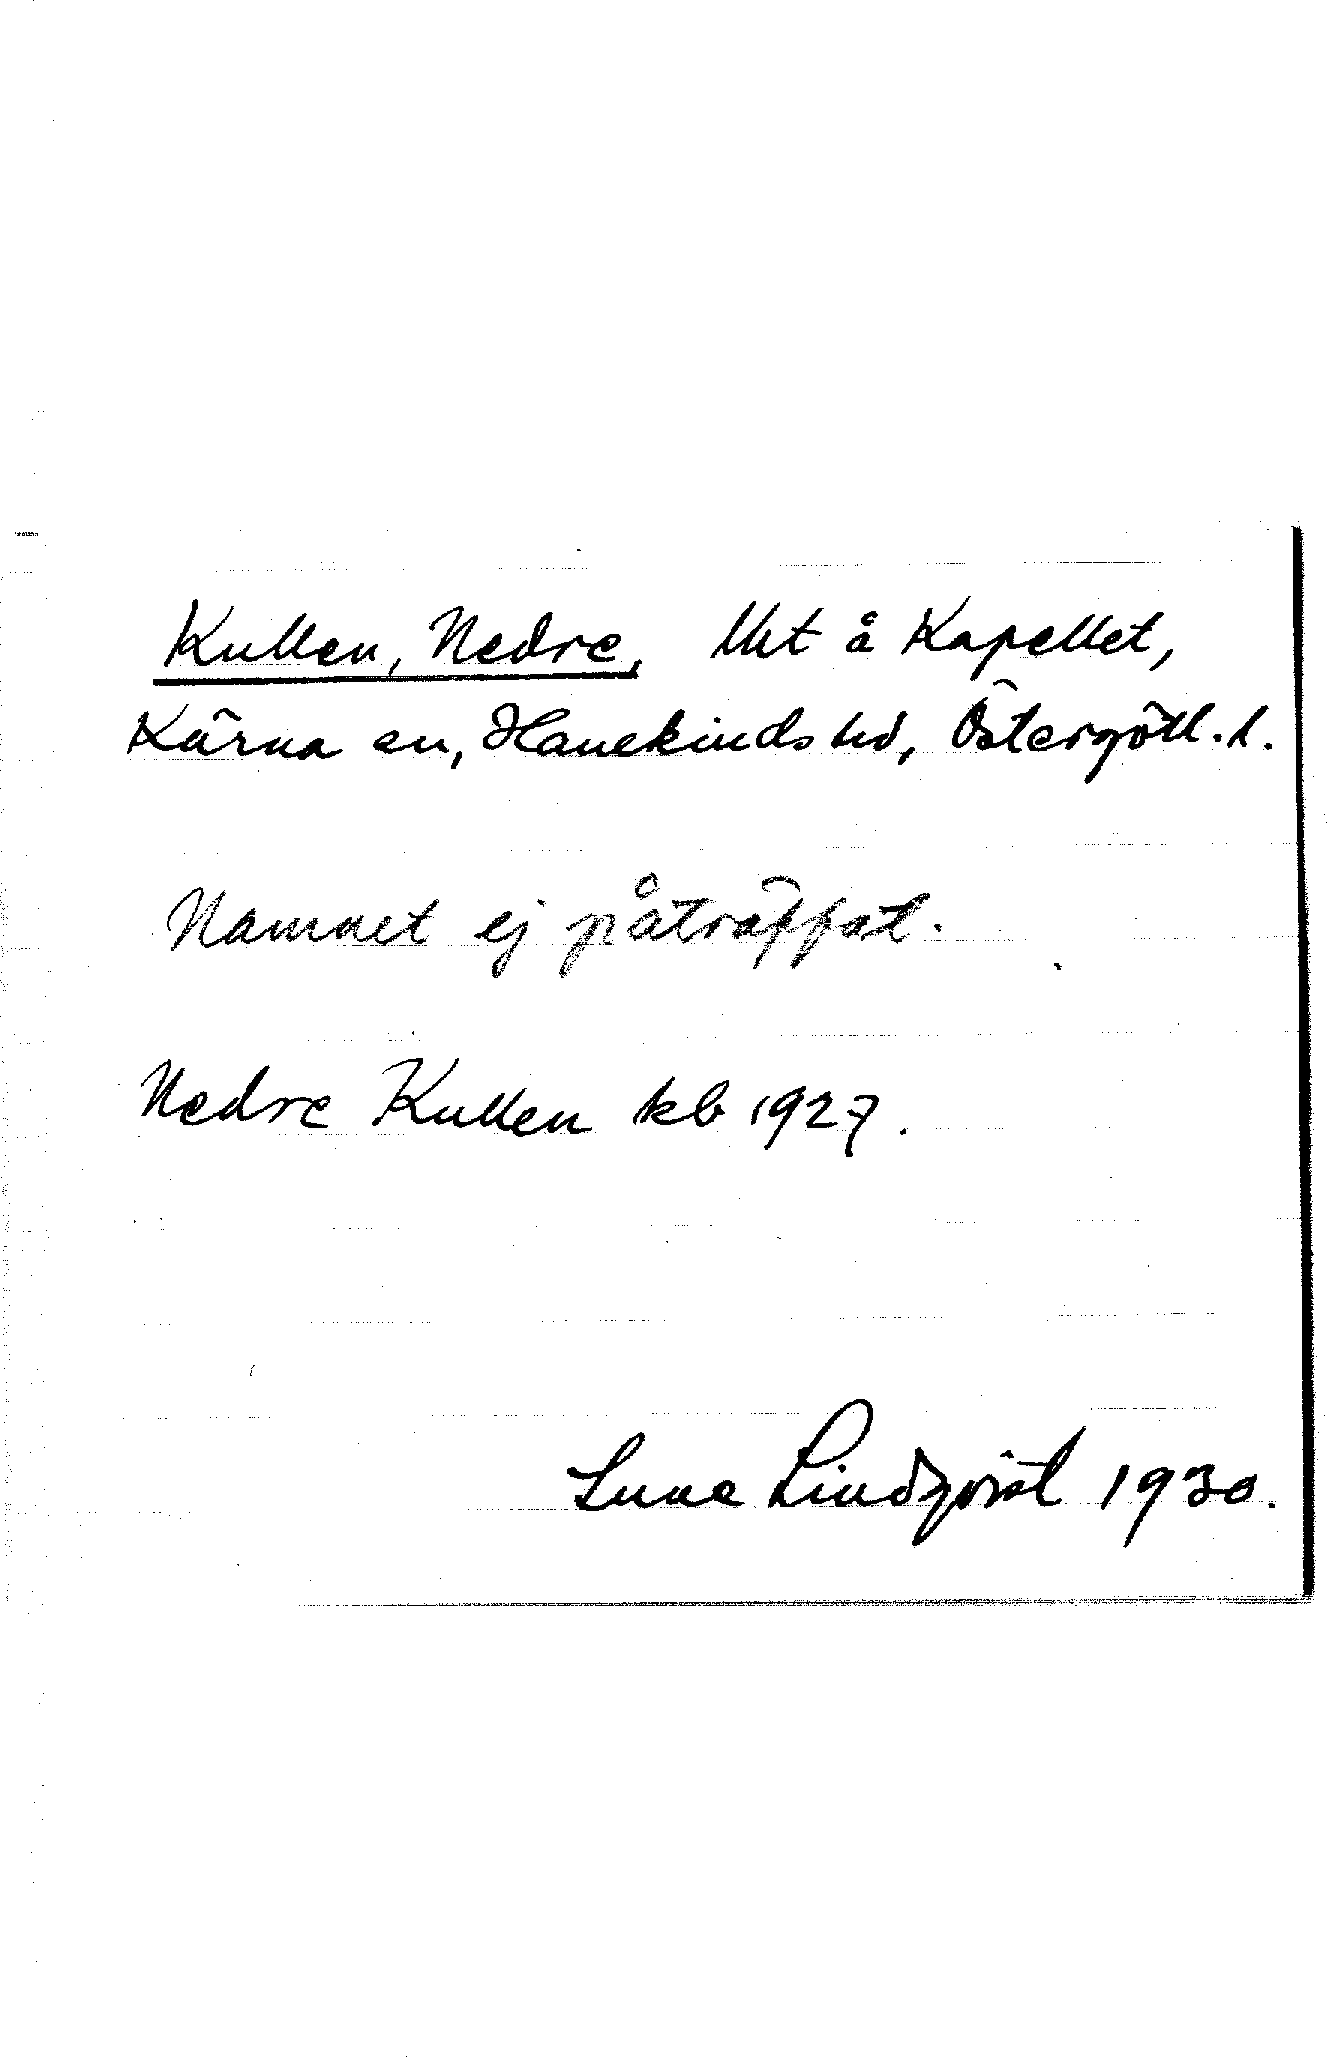 Kullen, Nedre, lht å Kapellet,
Kärna sn, Hanekinds hd, Östergötl. l.
Namnet ej påträffat.
Nedre Kullen kb 1927.
Sune Lindqvist 1930.